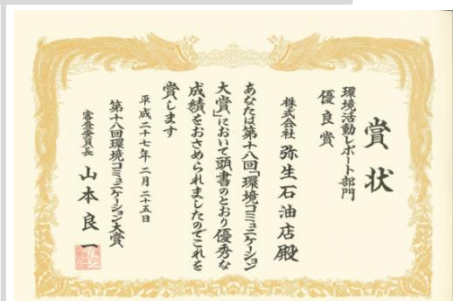 賞状
環境活動レポート部門
優良賞
株式会社 弥生石油店殿
あなたは第十八回「環境コミュニケーション
大賞」において頭書のとおり優秀な
成績をおさめられましたのでこれを
賞します
平成二十七年二月二十五日
第十八回環境コミュニケーション大賞
審査委員長 山本良一